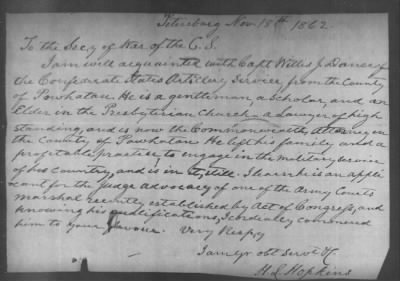 Petersburg Nov 18th 1862
To the Secy of War of the C. S.
I am well acquainted with Capt Willis J Dance of
the Confederate States Artillery Service from the County
of Powhatan. He is a gentleman, a scholar, and an
Elder in the Presbyterian Church, a Lawyer of high
standing, and is now the Commonwealth's Attorney in
the County of Powhatan He left his family and a
profitable Practise, to engage in the military service
of his country, and is in it, still. I learn he is an appli
cant for the Judge advocacy of one of the Army Courts
marshal recently established by Act of Congress, and
knowing his qualifications, I cordialey commend
him to your favour. Very Respy
I am yr obt Servt
H. L. Hopkins